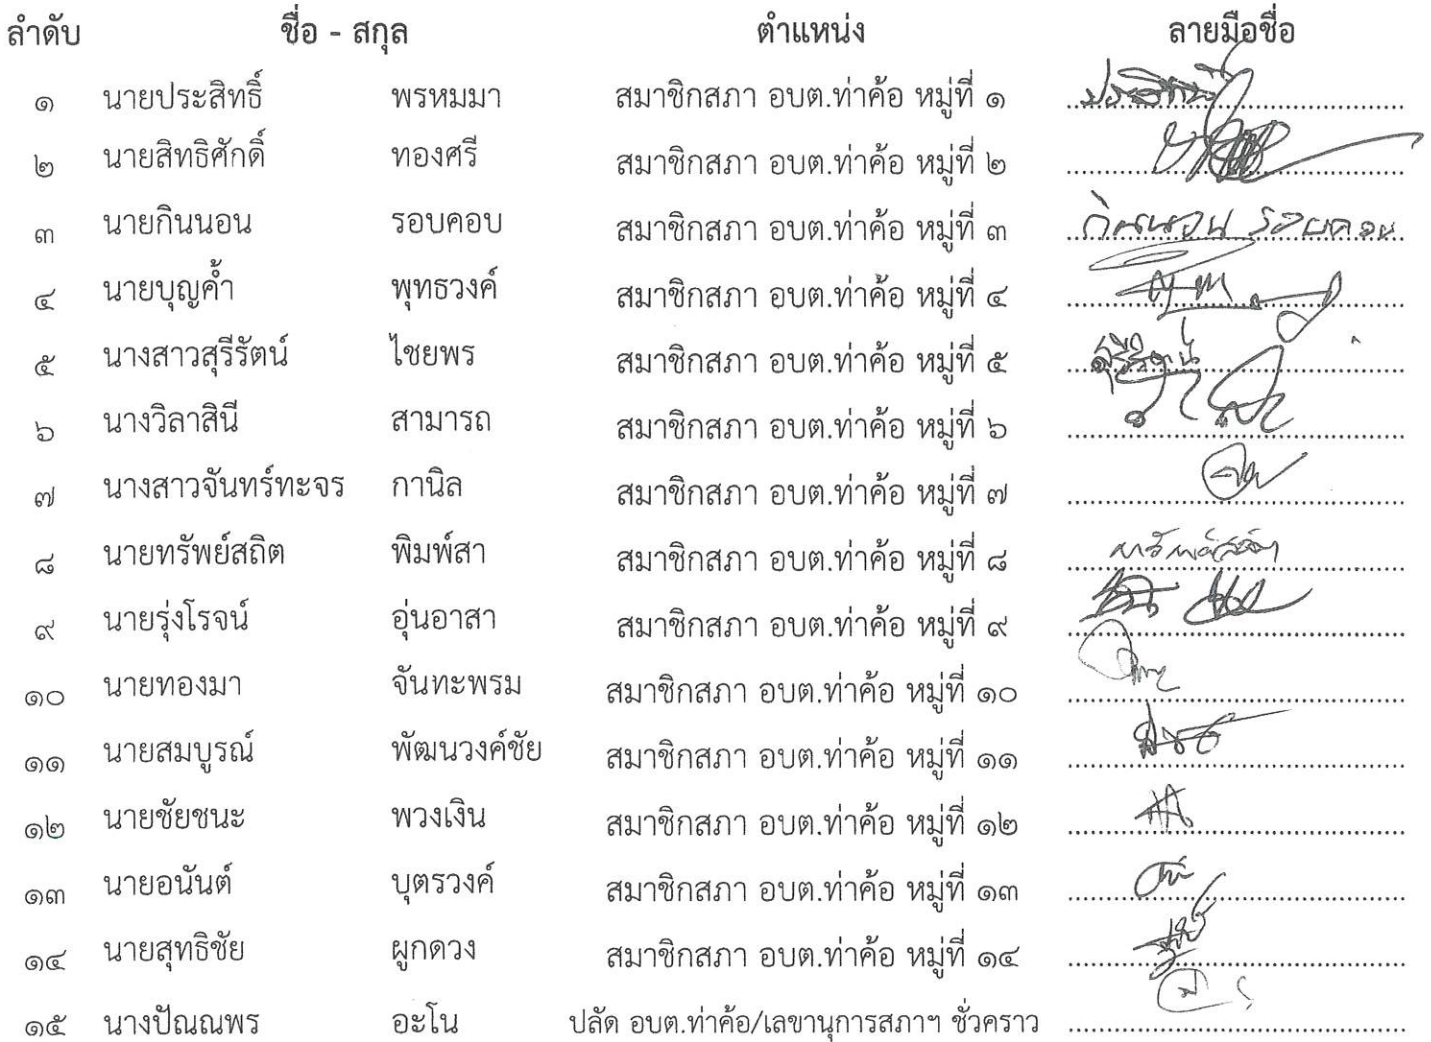 ลำดับ ชื่อ - สกุล ตำแหน่ง ลายมือชื่อ
๑ นายประสิทธิ์ พรหมมา สมาชิกสภา อบต.ท่าค้อ หมู่ที่ ๑
๒ นายสิทธิศักดิ์ ทองศรี สมาชิกสภา อบต.ท่าค้อ หมู่ที่ ๒
๓ นายกินนอน รอบคอบ สมาชิกสภา อบต.ท่าค้อ หมู่ที่ ๓ กินนอน รอบคอบ
๔ นายบุญค้ำ พุทธวงค์ สมาชิกสภา อบต.ท่าค้อ หมู่ที่ ๔
๕ นางสาวสุรีรัตน์ ไชยพร สมาชิกสภา อบต.ท่าค้อ หมู่ที่ ๕
๖ นางวิลาสินี สามารถ สมาชิกสภา อบต.ท่าค้อ หมู่ที่ ๖
๗ นางสาวจันทร์ทะจร กานิล สมาชิกสภา อบต.ท่าค้อ หมู่ที่ ๗
๘ นายทรัพย์สถิต พิมพ์สา สมาชิกสภา อบต.ท่าค้อ หมู่ที่ ๘
๙ นายรุ่งโรจน์ อุ่นอาสา สมาชิกสภา อบต.ท่าค้อ หมู่ที่ ๙
๑๐ นายทองมา จันทะพรม สมาชิกสภา อบต.ท่าค้อ หมู่ที่ ๑๐
๑๑ นายสมบูรณ์ พัฒนวงค์ชัย สมาชิกสภา อบต.ท่าค้อ หมู่ที่ ๑๑
๑๒ นายชัยชนะ พวงเงิน สมาชิกสภา อบต.ท่าค้อ หมู่ที่ ๑๒
๑๓ นายอนันต์ บุตรวงค์ สมาชิกสภา อบต.ท่าค้อ หมู่ที่ ๑๓
๑๔ นายสุทธิชัย ผูกดวง สมาชิกสภา อบต.ท่าค้อ หมู่ที่ ๑๔
๑๕ นางปัณณพร อะโน ปลัด อบต.ท่าค้อ/เลขานุการสภาฯ ชั่วคราว